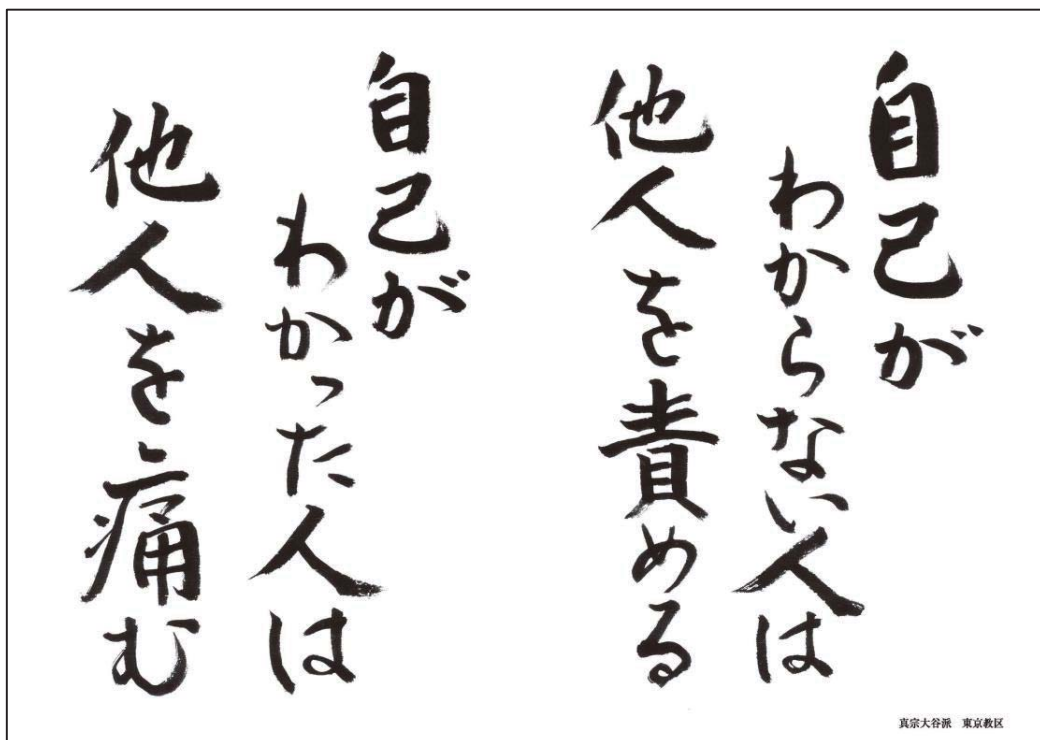 自己が
わからない人は
他人を責める
自己が
わかった人は
他人を痛む
真宗大谷派　東京教区